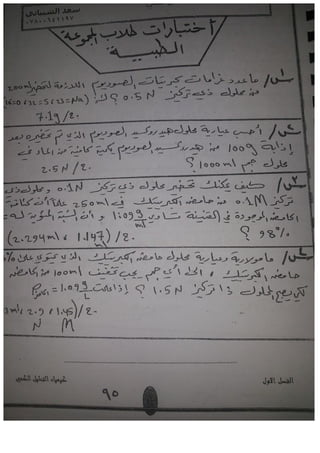 سعد
أختبارات طلاب المجموعة
الطبية
س١/ ماعدد غرامات كبريتات الصوديوم اللازمة لتحضير 200ml
من محلول ذي تركيز 0.5N ؟
ج/ 7.1g
س٢/ أحسب عيارية محلول هيدروكسيد الصوديوم الذي تم تحضيره بعد
إذابة 100g من هيدروكسيد الصوديوم بكمية كافية من الماء في
محلول حجم 1000ml ؟ ج/ 2.5N
س٣/ كيف يمكنك تحضير محلول ذي تركيز 0.1N ومحلول ذي
تركيز 0.1M من حامض الكبريتيك في 250ml علماً أن كثافة
الحامض الموجودة في القنينة تساوي 1.09 g/ml و أن النسبة المئوية له =
98% ؟ ج/ (1.147, 2.294ml)
س٤/ مامولارية وعيارية محلول حامض الكبريتيك الذي يحتوي على
حامض الكبريتيك، الى أي حجم يجب تخفيف 100ml من الحامض
لكي يصبح المحلول ذا تركيز 1.5N ؟ إذا علمت
ج/ (1.45, 2.9,
M N
الفصل الأول
كيمياء التحليل الكمي
٩٥